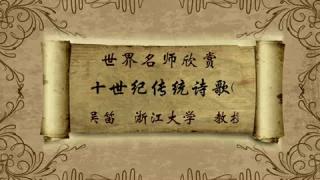 世界名师欣赏
十世纪传统诗歌(
吴笛 浙江大学 教